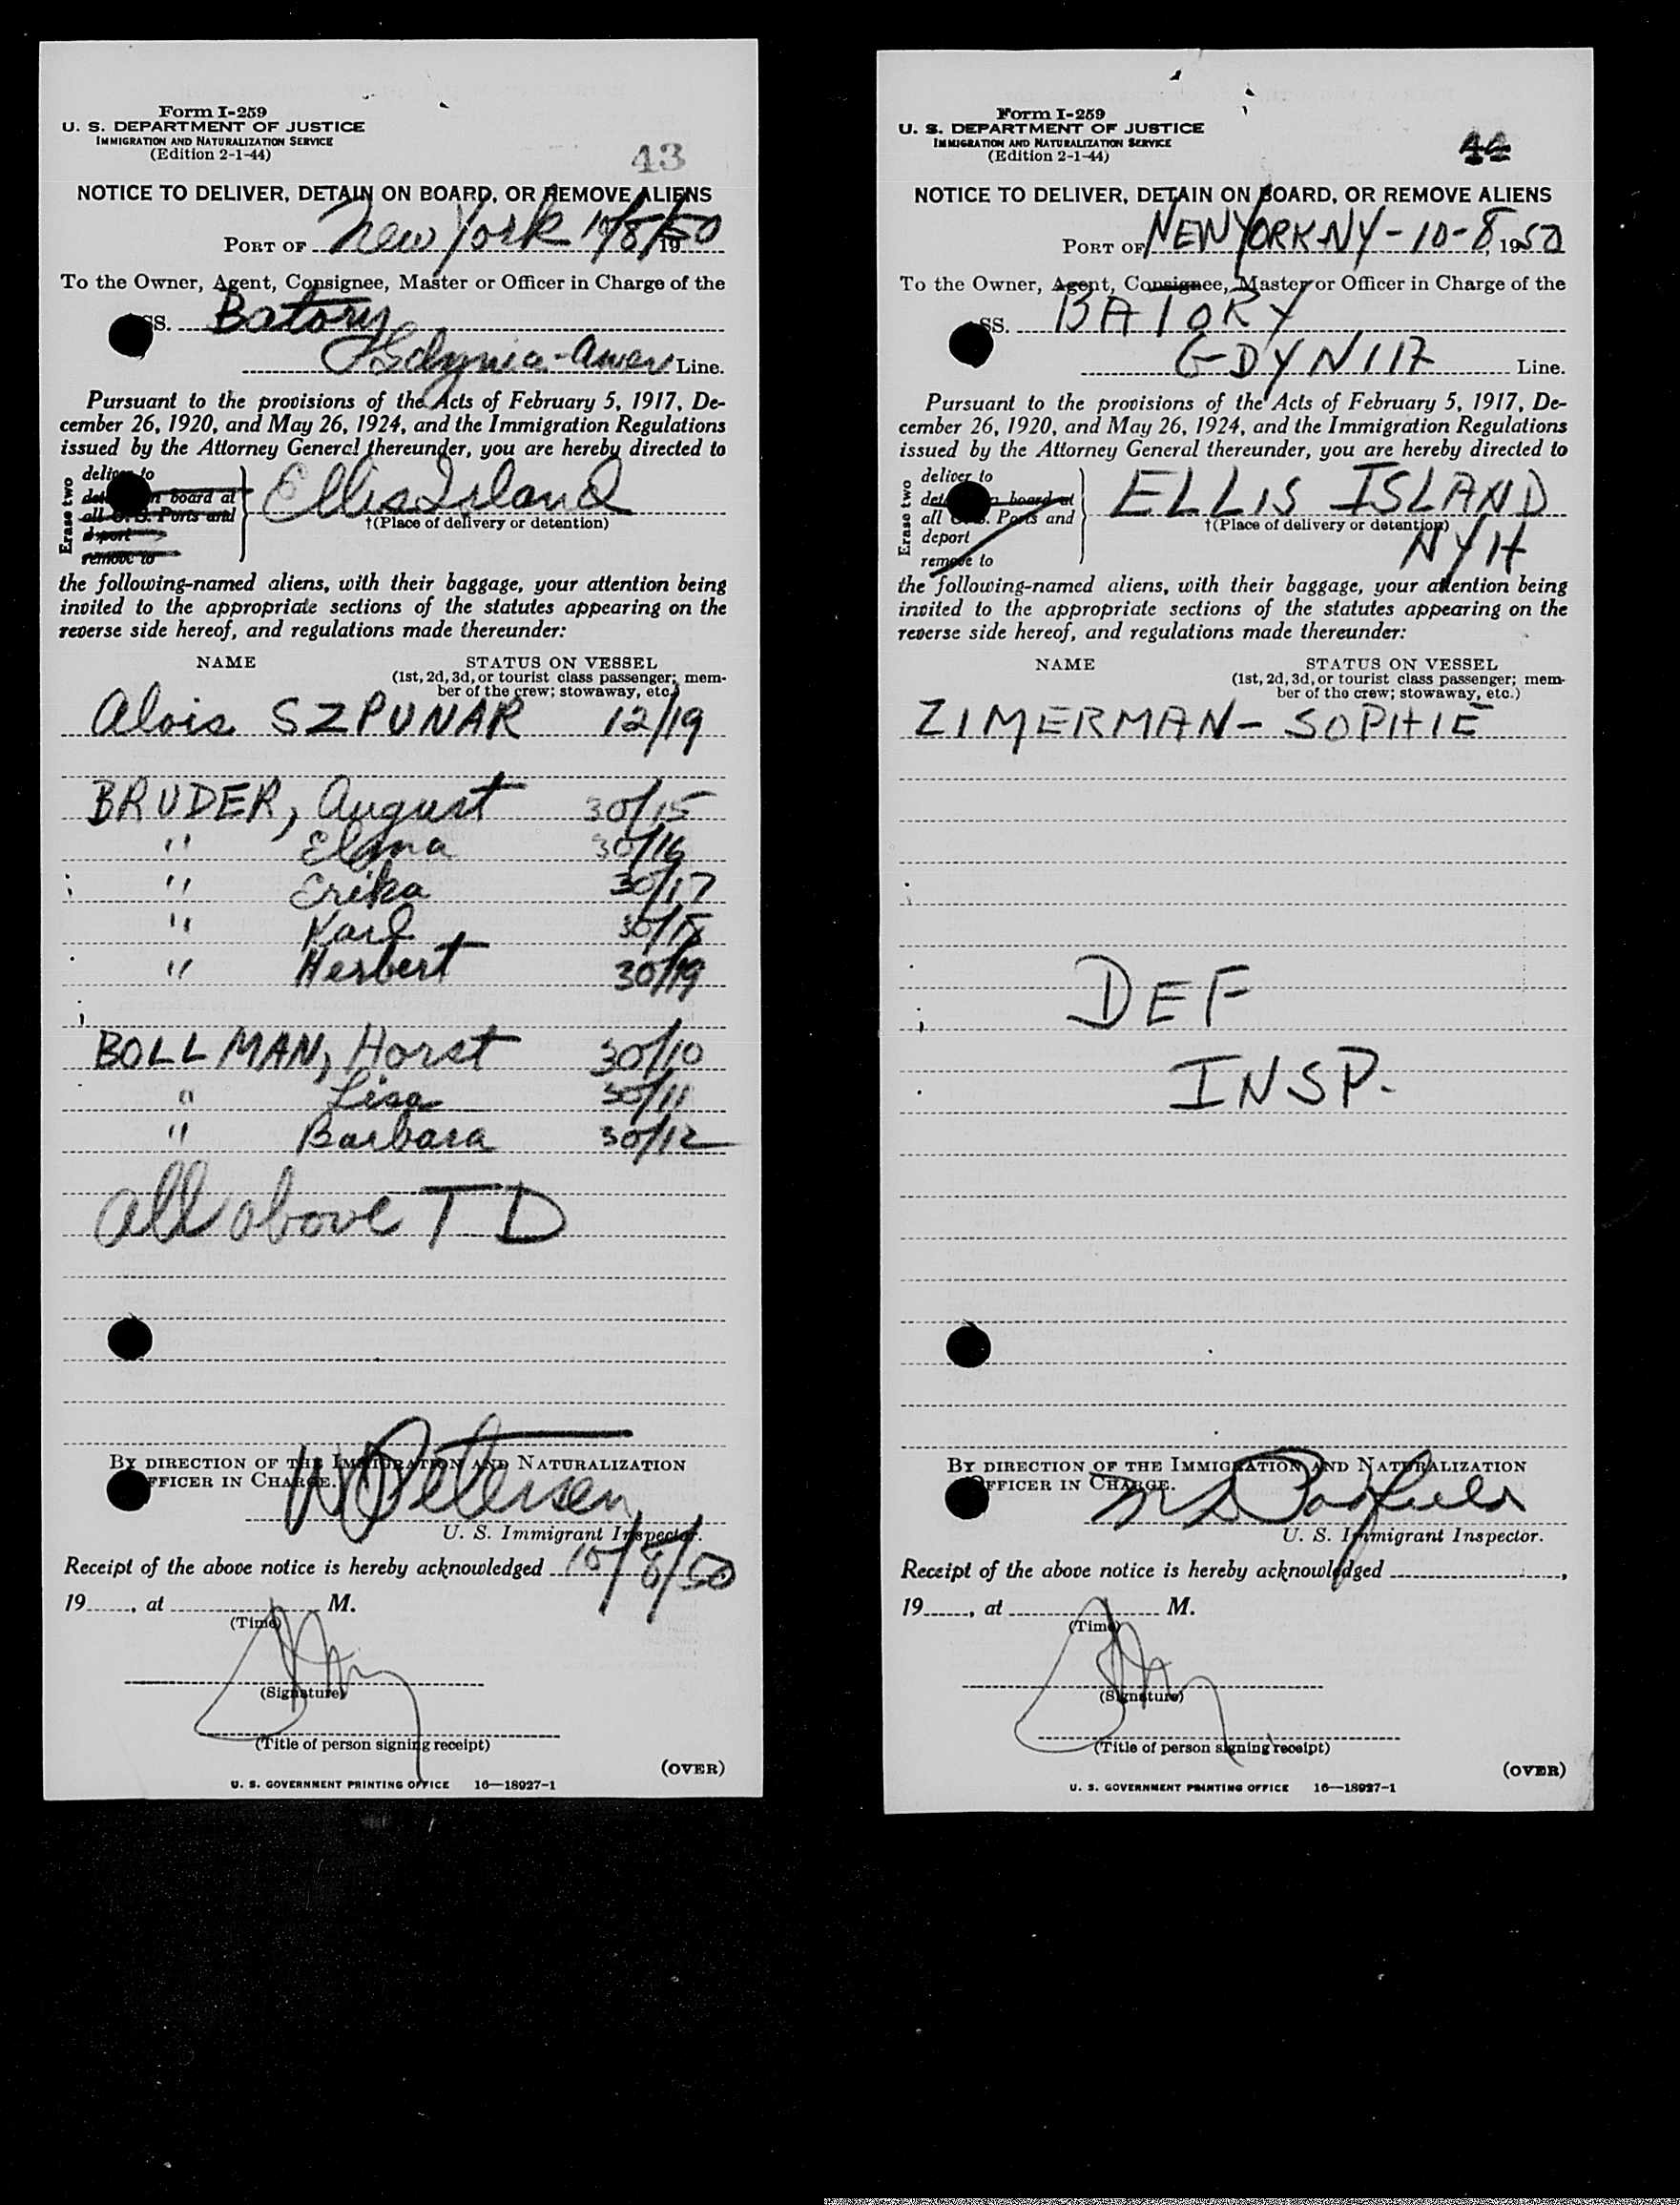 Form I-259
U. S. DEPARTMENT OF JUSTICE
IMMIGRATION AND NATURALIZATION SERVICE
(Edition 2-1-44)
43
NOTICE TO DELIVER, DETAIN ON BOARD, OR REMOVE ALIENS
PORT OF New York 10/8/50 19
To the Owner, Agent, Consignee, Master or Officer in Charge of the
SS. Batory
Gdynia-Amer Line.
Pursuant to the provisions of the Acts of February 5, 1917, De-
cember 26, 1920, and May 26, 1924, and the Immigration Regulations
issued by the Attorney General thereunder, you are hereby directed to
Erase two
deliver to
on board at
all U. S. Ports and
deport
remove to
Ellis Island
†(Place of delivery or detention)
the following-named aliens, with their baggage, your attention being
invited to the appropriate sections of the statutes appearing on the
reverse side hereof, and regulations made thereunder:
NAME STATUS ON VESSEL
(1st, 2d, 3d, or tourist class passenger; mem-
ber of the crew; stowaway, etc.)
Alois SZPUNAR 12/19
BRUDER, August 30/15
" 30/16
" Erika 30/17
" Karl 30/18
" Herbert 30/19
BOLLMAN, Horst 30/10
" Lisa 30/11
" Barbara 30/12
all above T D
BY DIRECTION OF THE IMMIGRATION AND NATURALIZATION
OFFICER IN CHARGE.
W Petersen
U. S. Immigrant Inspector.
Receipt of the above notice is hereby acknowledged 10/8/50
19, at M.
(Time)
(Signature)
(Title of person signing receipt)
(OVER)
U. S. GOVERNMENT PRINTING OFFICE 16—18927-1
Form I-259
U. S. DEPARTMENT OF JUSTICE
IMMIGRATION AND NATURALIZATION SERVICE
(Edition 2-1-44)
44
NOTICE TO DELIVER, DETAIN ON BOARD, OR REMOVE ALIENS
PORT OF NEW YORK NY - 10-8, 1950
To the Owner, Agent, Consignee, Master or Officer in Charge of the
SS. BATORY
GDYNIA Line.
Pursuant to the provisions of the Acts of February 5, 1917, De-
cember 26, 1920, and May 26, 1924, and the Immigration Regulations
issued by the Attorney General thereunder, you are hereby directed to
Erase two
deliver to
on board at
all U. S. Ports and
deport
remove to
ELLIS ISLAND
†(Place of delivery or detention)
NYH
the following-named aliens, with their baggage, your attention being
invited to the appropriate sections of the statutes appearing on the
reverse side hereof, and regulations made thereunder:
NAME STATUS ON VESSEL
(1st, 2d, 3d, or tourist class passenger; mem-
ber of the crew; stowaway, etc.)
ZIMERMAN - SOPHIE
DEF
INSP.
BY DIRECTION OF THE IMMIGRATION AND NATURALIZATION
OFFICER IN CHARGE.
U. S. Immigrant Inspector.
Receipt of the above notice is hereby acknowledged ,
19, at M.
(Time)
(Signature)
(Title of person signing receipt)
(OVER)
U. S. GOVERNMENT PRINTING OFFICE 16—18927-1